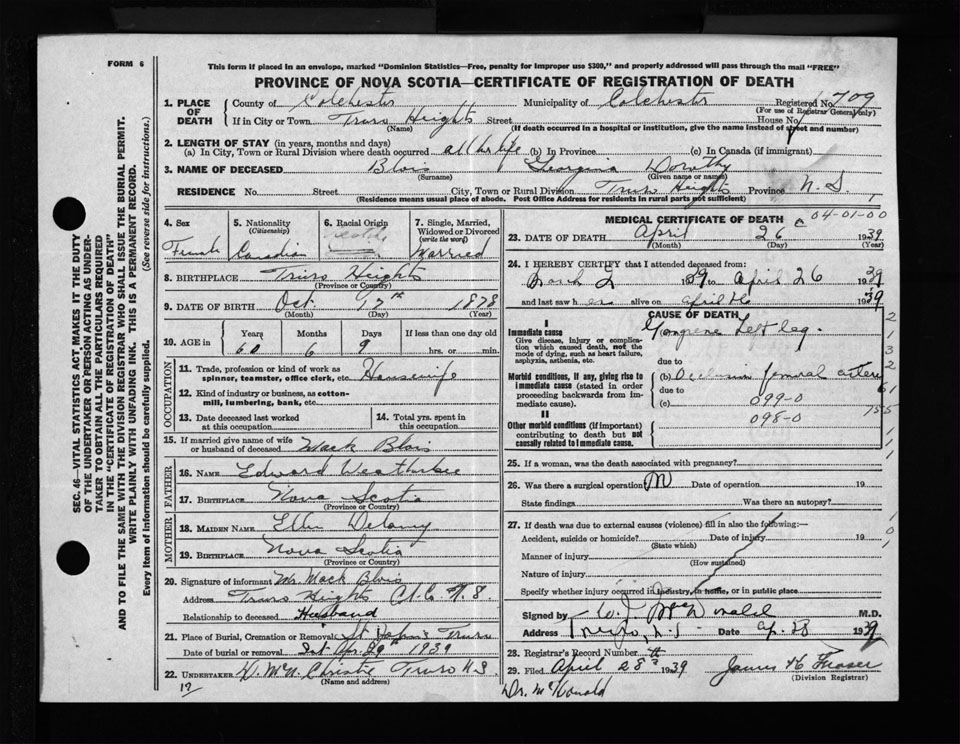 FORM 6
This form if placed in an envelope, marked "Dominion Statistics—Free, penalty for improper use $300," and properly addressed will pass through the mail "FREE"
PROVINCE OF NOVA SCOTIA—CERTIFICATE OF REGISTRATION OF DEATH
1. PLACE OF DEATH County of Colchester Municipality of Colchester Registered No. 709
(For use of Registrar General only)
If in City or Town Truro Heights Street House No.
(Name) (If death occurred in a hospital or institution, give the name instead of street and number)
2. LENGTH OF STAY (in years, months and days)
(a) In City, Town or Rural Division where death occurred all her life (b) In Province (c) In Canada (if immigrant)
3. NAME OF DECEASED Blois Georgina Dorothy
(Surname) (Given name or names)
RESIDENCE No. Street City, Town or Rural Division Truro Heights Province N. S.
(Residence means usual place of abode. Post Office Address for residents in rural parts not sufficient)
SEC. 46—VITAL STATISTICS ACT, MAKES IT THE DUTY
OF THE UNDERTAKER OR PERSON ACTING AS UNDER-
TAKER TO OBTAIN ALL THE PARTICULARS REQUIRED
IN THE "CERTIFICATE OF REGISTRATION OF DEATH"
AND TO FILE THE SAME WITH THE DIVISION REGISTRAR WHO SHALL ISSUE THE BURIAL PERMIT.
WRITE PLAINLY WITH UNFADING INK. THIS IS A PERMANENT RECORD.
Every item of information should be carefully supplied. (See reverse side for instructions.)
4. Sex 5. Nationality (Citizenship) 6. Racial Origin 7. Single, Married, Widowed or Divorced (write the word)
Canadian Married
8. BIRTHPLACE Truro Heights
(Province or Country)
9. DATE OF BIRTH Oct. 17th 1878
(Month) (Day) (Year)
10. AGE in Years Months Days If less than one day old
60 6 9 hrs. or min.
OCCUPATION
11. Trade, profession or kind of work as spinner, teamster, office clerk, etc. Housewife
12. Kind of industry or business, as cotton-mill, lumbering, bank, etc.
13. Date deceased last worked at this occupation 14. Total yrs. spent in this occupation
15. If married give name of wife or husband of deceased Mack Blois
FATHER
16. NAME Edward Weatherbee
17. BIRTHPLACE Nova Scotia
(Province or Country)
MOTHER
18. MAIDEN NAME Ellen Delaney
19. BIRTHPLACE Nova Scotia
(Province or Country)
20. Signature of informant Mr. Mack Blois
Address Truro Heights Col. Co. N. S
Relationship to deceased Husband
21. Place of Burial, Cremation or Removal St John's Truro
Date of burial or removal Sat Apr. 29th 1939
22. UNDERTAKER Christie Truro N S
(Name and address)
12
MEDICAL CERTIFICATE OF DEATH
04-01-00
23. DATE OF DEATH April 26 1939
(Month) (Day) (Year)
24. I HEREBY CERTIFY that I attended deceased from:
March 39 to April 26 1939
and last saw her alive on April 26 1939
CAUSE OF DEATH
I
Immediate cause Gangrene Left leg.
Give disease, injury or complication which caused death, not the mode of dying, such as heart failure, asphyxia, asthenia, etc.
due to
Morbid conditions, if any, giving rise to immediate cause (stated in order proceeding backwards from immediate cause). (b) Occlusion femoral artery
due to
(c) 099-0
II
Other morbid conditions (if important) contributing to death but not causally related to immediate cause. 098-0
25. If a woman, was the death associated with pregnancy?
26. Was there a surgical operation? Date of operation 19
State findings Was there an autopsy?
27. If death was due to external causes (violence) fill in also the following:—
Accident, suicide or homicide? Date of injury 19
(State which)
Manner of injury
(How sustained)
Nature of injury
Specify whether injury occurred in industry, in home, or in public place
Signed by W. J. McDonald M.D.
Address Truro, N.S Date Ap. 28 1939
28. Registrar's Record Number
29. Filed April 28th 1939 James H Fraser
(Division Registrar)
Dr. McDonald